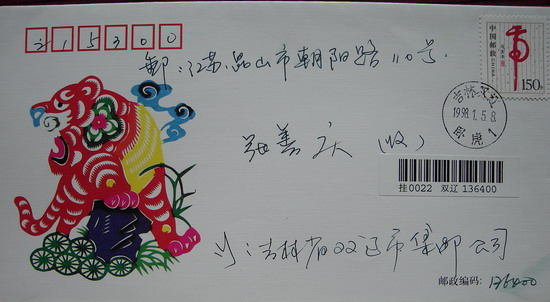 215300
邮:江苏昆山市朝阳路110号.
中国邮政
CHINA
虎
150分
吉林双辽
1998.1.5.8
卧虎1
张善庆 (收)
挂0022 双辽 136400
吉林省双辽市集邮公司
邮政编码: 136400